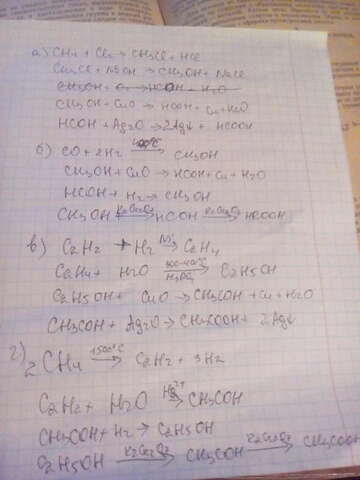 а) CH4 + Cl2 → CH3Cl + HCl
CH3Cl + NaOH → CH3OH + NaCl
CH3OH + CuO → HCOH + Cu + H2O
HCOH + Ag2O → 2Ag↓ + HCOOH
б) CO + 2H2 400°C→ CH3OH
CH3OH + CuO → HCOH + Cu + H2O
HCOH + H2 → CH3OH
CH3OH K2Cr2O7→ HCOH K2Cr2O7→ HCOOH
в) C2H2 + H2 Ni→ C2H4
C2H4 + H2O H3PO4→ C2H5OH
C2H5OH + CuO → CH3COH + Cu + H2O
CH3COH + Ag2O → CH3COOH + 2Ag↓
г) 2CH4 1500°C→ C2H2 + 3H2
C2H2 + H2O Hg2+→ CH3COH
CH3COH + H2 → C2H5OH
C2H5OH K2Cr2O7→ CH3COH K2Cr2O7→ CH3COOH